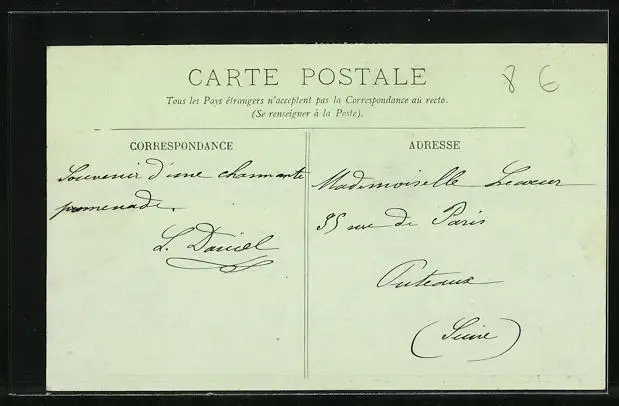 CARTE POSTALE
8 6
Tous les Pays étrangers n'acceptent pas la Correspondance au recto.
(Se renseigner à la Poste).
CORRESPONDANCE
Souvenir d'une charmante
promenade.
L. Daniel
ADRESSE
Mademoiselle
35 rue de Paris
Puteaux
(Seine)